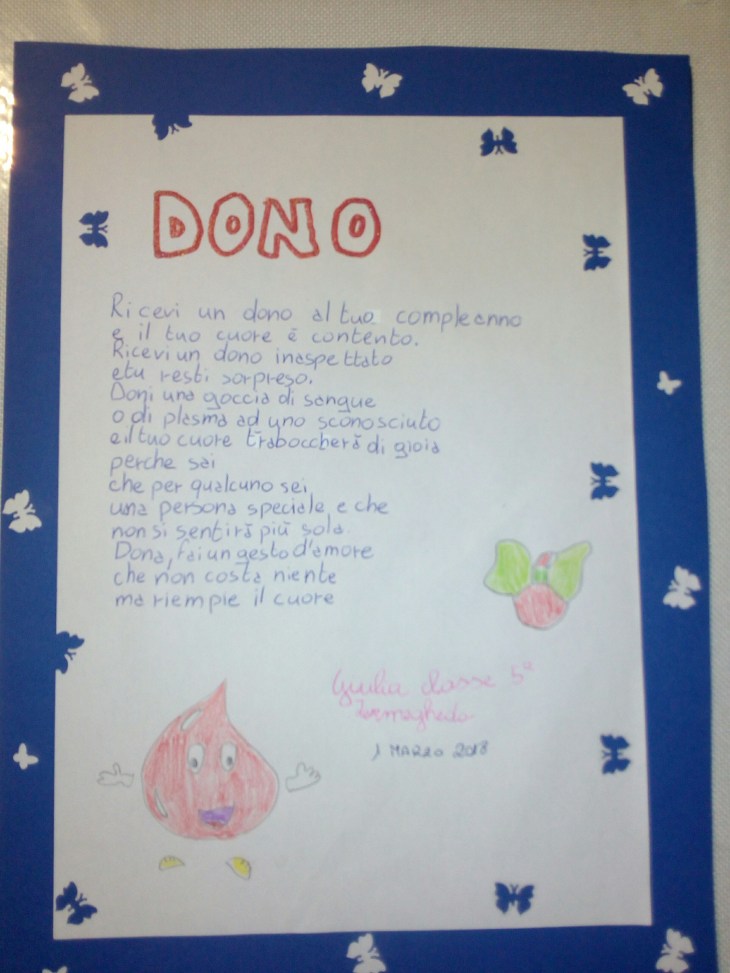 DONO
Ricevi un dono al tuo compleanno
e il tuo cuore é contento.
Ricevi un dono inaspettato
e tu resti sorpreso.
Doni una goccia di sangue
o di plasma ad uno sconosciuto
e il tuo cuore traboccherá di gioia
perche sai
che per qualcuno sei
una persona speciale e che
non si sentirá piú sola
Dona, fai un gesto d'amore
che non costa niente
ma riempie il cuore
Giulia classe 5ª
1 MARZO 2018